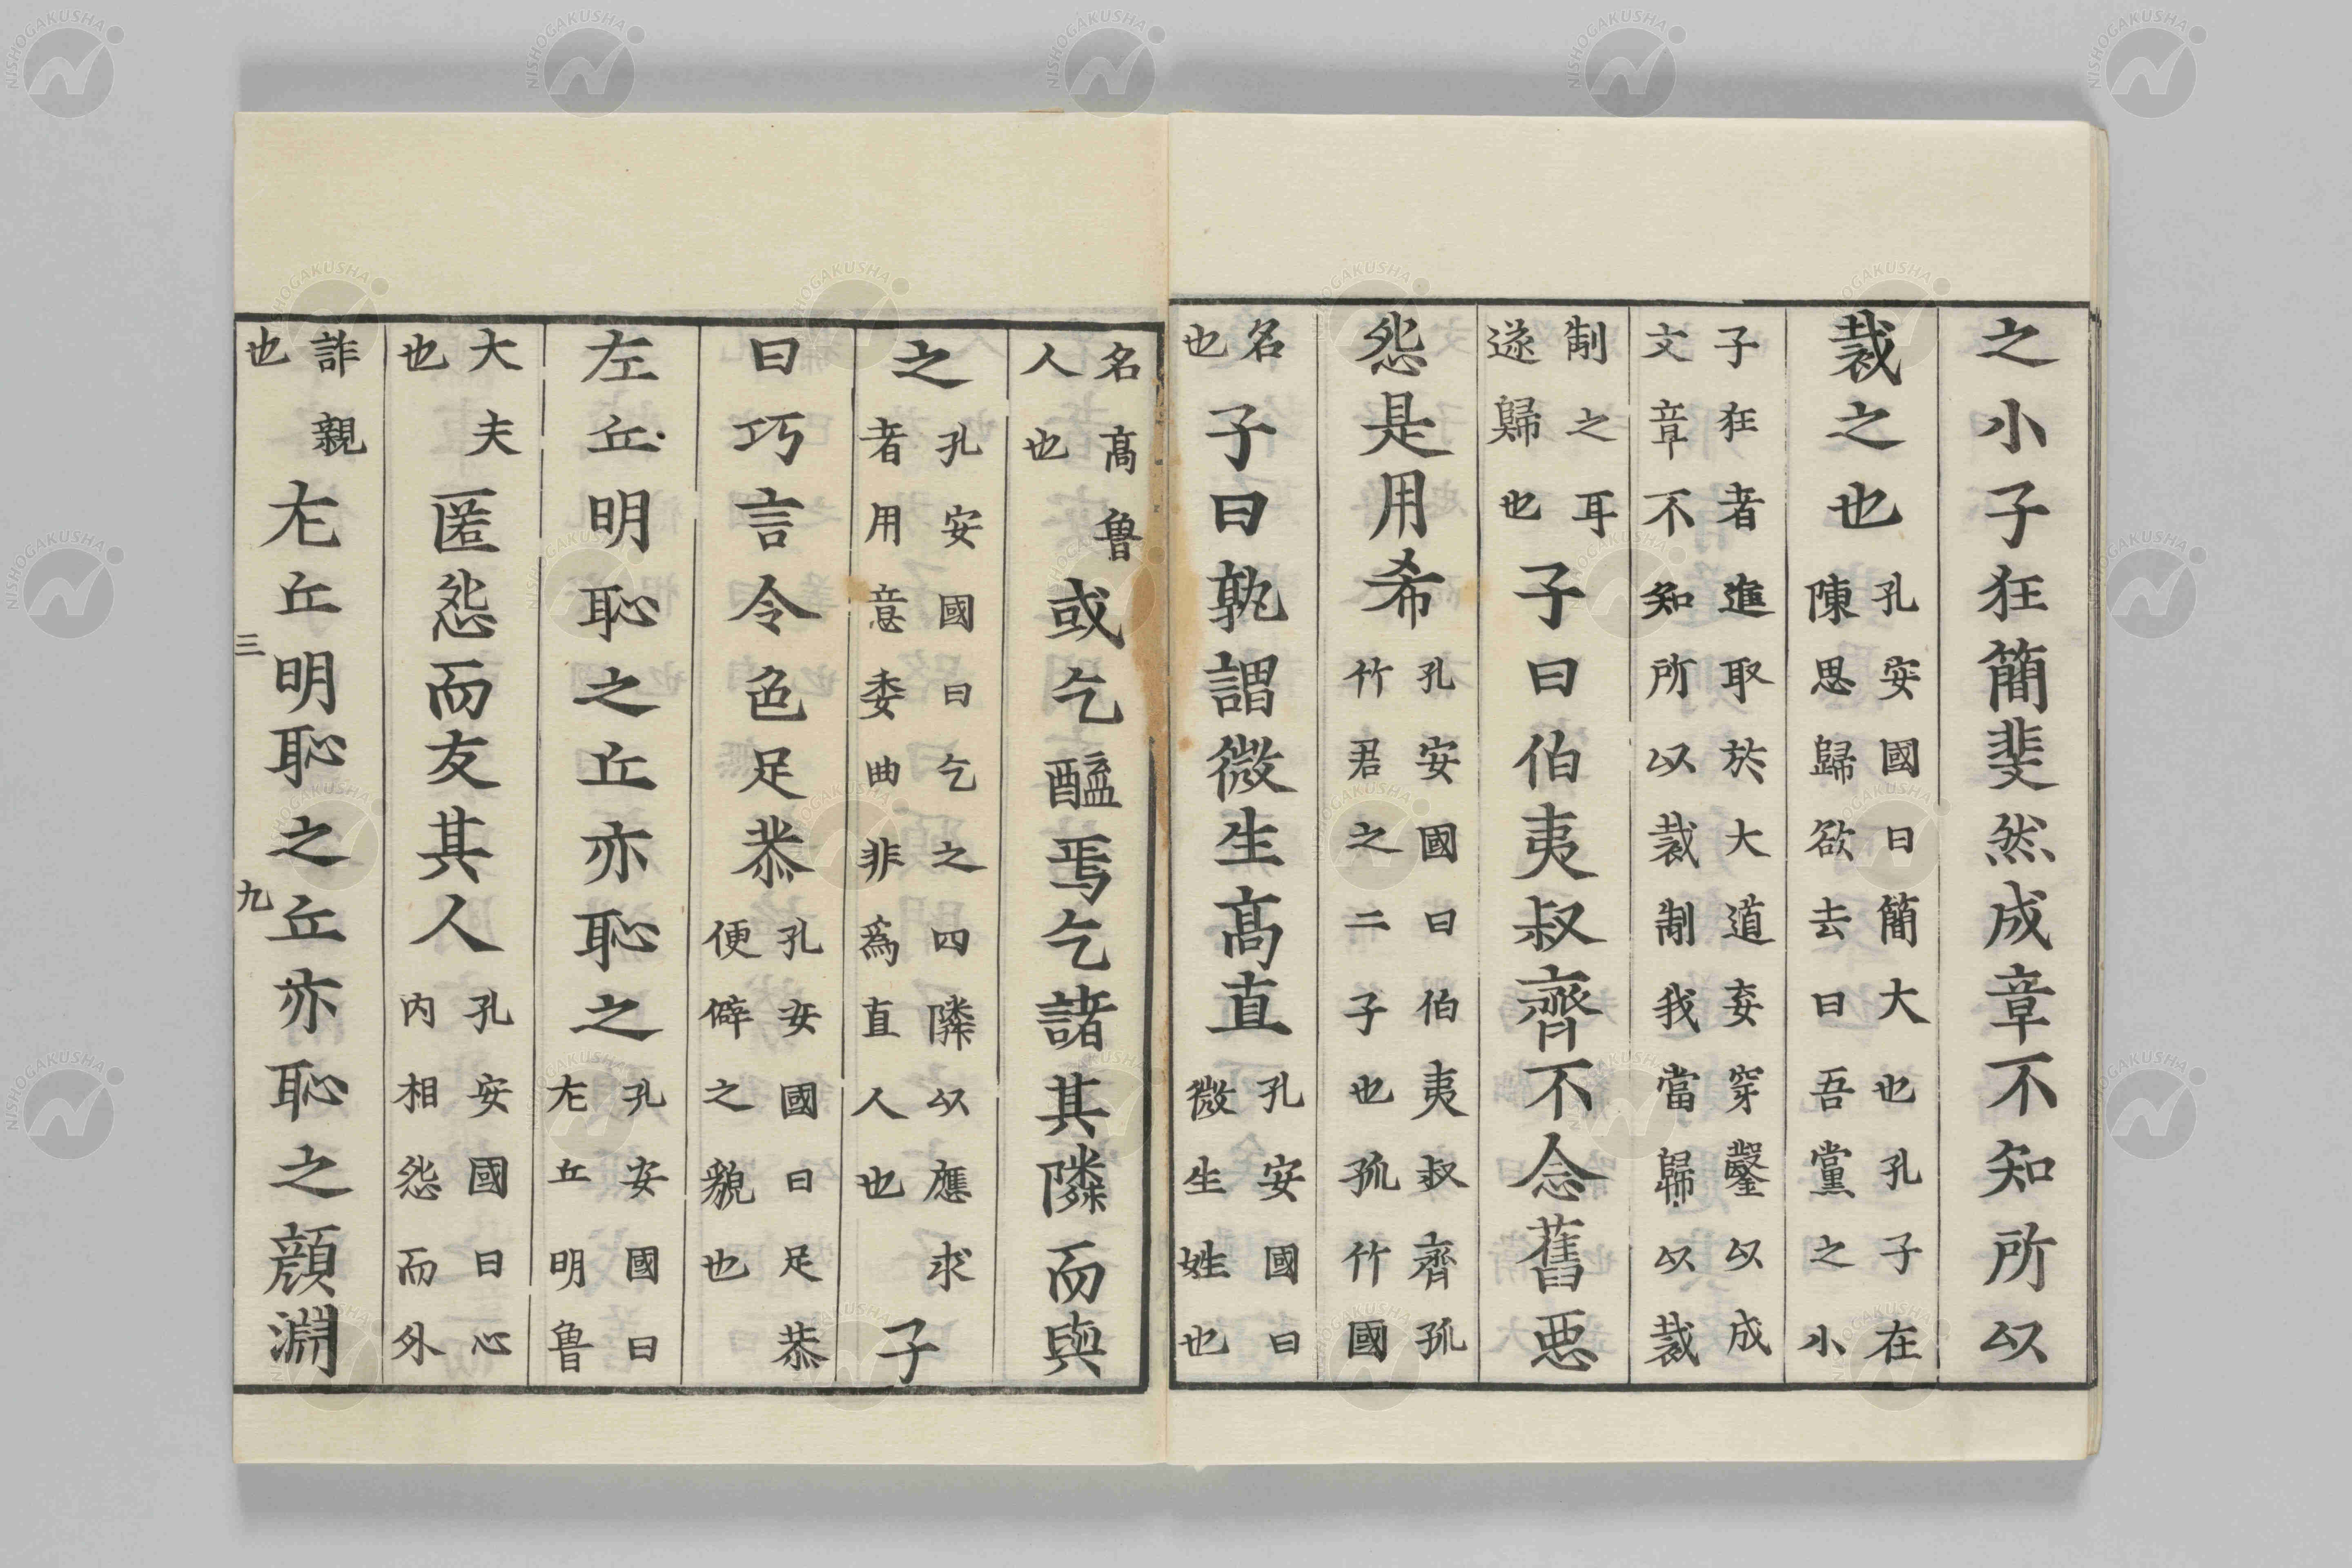 之小子狂簡斐然成章不知所以
裁之也
孔安國曰簡大也孔子在
陳思歸欲去曰吾黨之小
子狂者進取於大道妄穿鑿以成
文章不知所以裁制我當歸以裁
制之耳
遂歸也
子曰伯夷叔齊不念舊惡
怨是用希
孔安國曰伯夷叔齊孤
竹君之二子也孤竹國
名
也
子曰孰謂微生髙直
孔安國曰
微生姓也
名髙魯
人也
或乞醯焉乞諸其隣而與
之
孔安國曰乞之四隣以應求
者用意委曲非爲直人也
子
曰巧言令色足恭
孔安國曰足恭
便僻之貌也
左丘明恥之丘亦恥之
孔安國曰
左丘明魯
大夫
也
匿怨而友其人
孔安國曰心
内相怨而外
詐親
也
左丘明恥之丘亦恥之顔淵
三
九
NISHOGAKUSHA